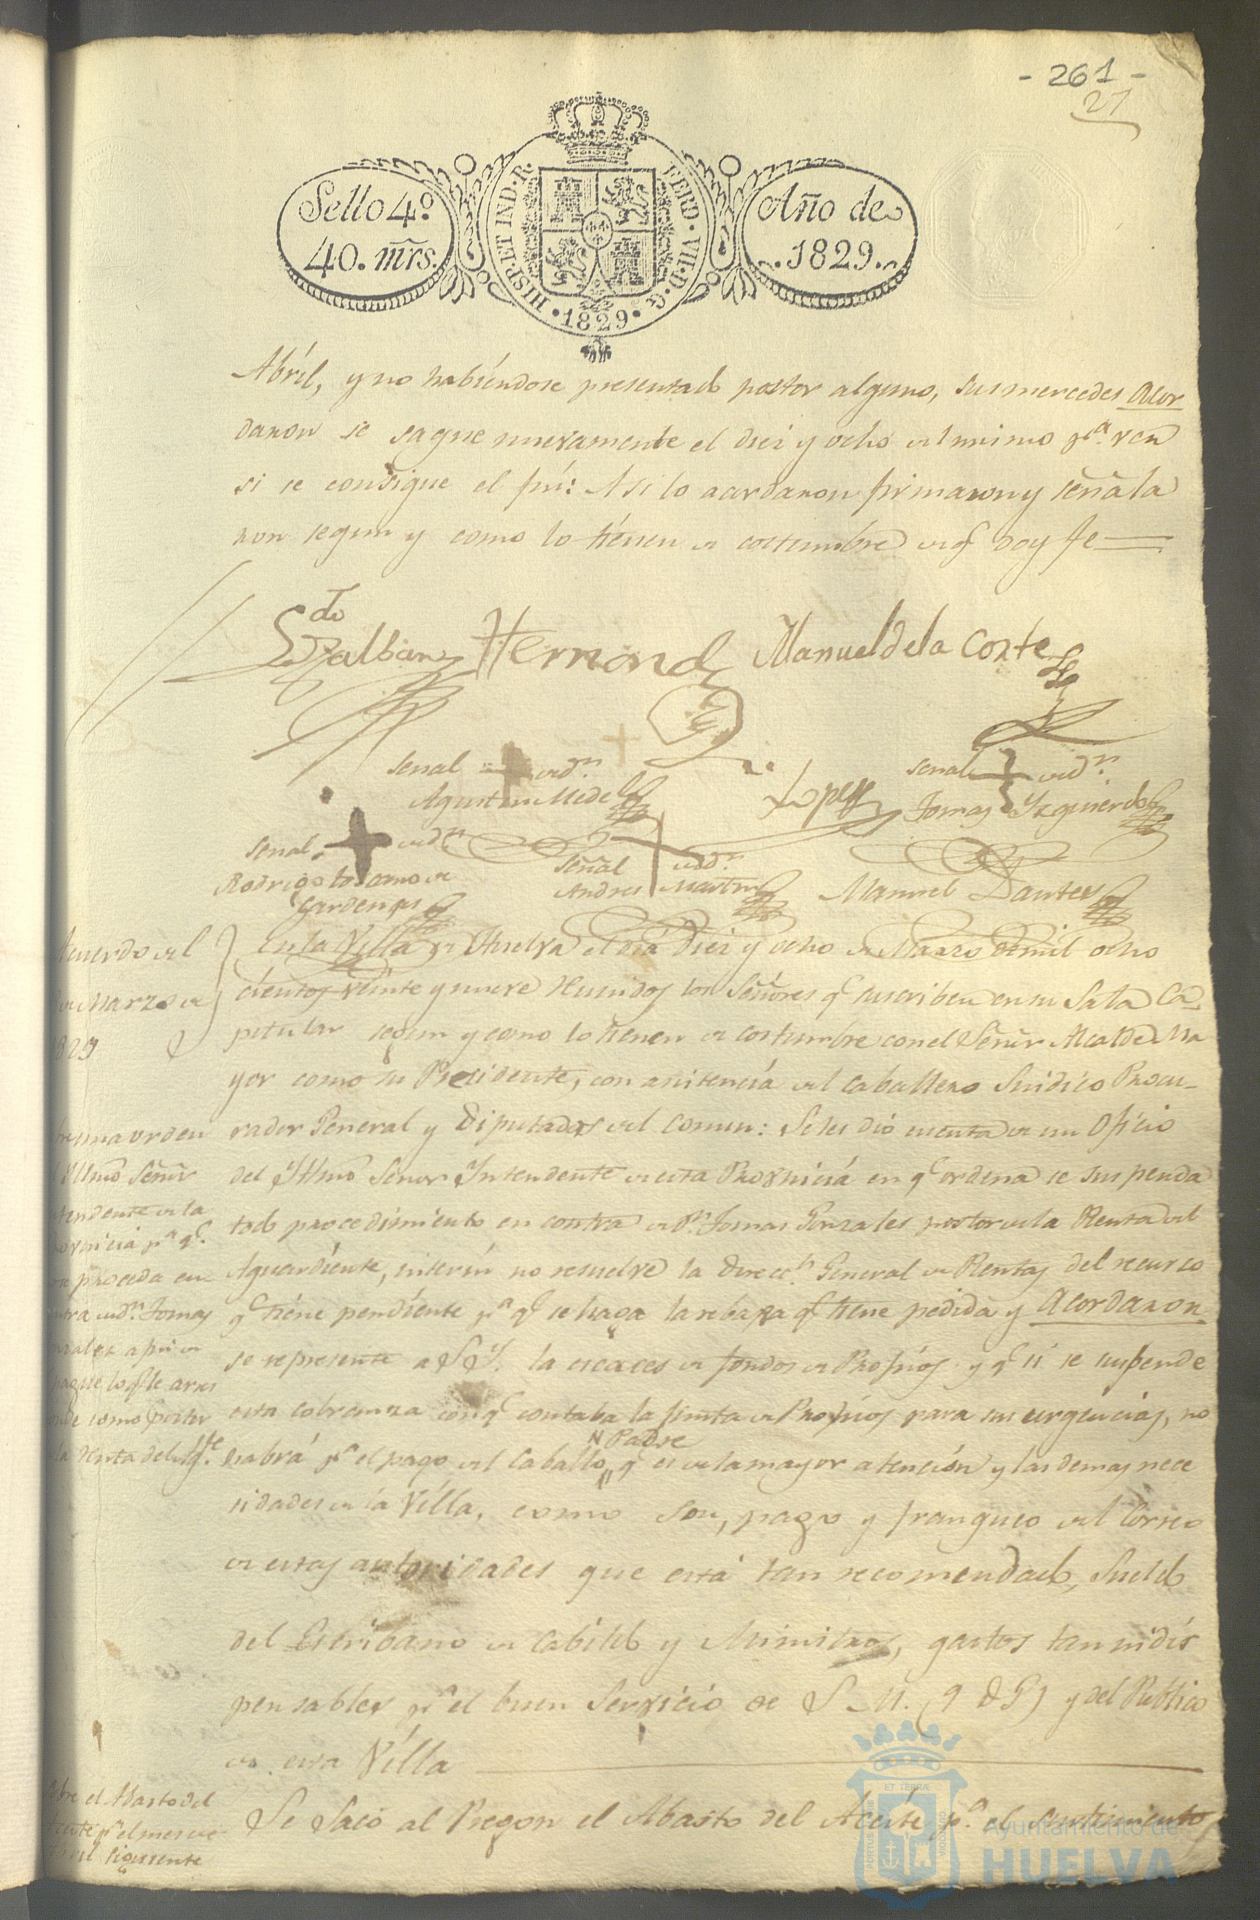 - 261 -
27
Sello 4º
40. mrs.
HISP. ET IND. R.
FERD. VII. D. G.
· 1829 ·
Año de
1829.
Abril, y no habiendose presentado postor alguno, sus mercedes Acor
daron se saque nuevamente el diez y ocho del mismo pª. ver
si se consigue el fin: Asi lo acordaron firmaron y señala
ron segun y como lo tienen de costumbre de q doy fe
Hernand
Manuel de la Corte
Señal de dn.
Agustin Mide
Lopez
Señal de dn.
Tomas Yzquierdo
Señal de dn
Rodrigo Lozano de
Cardenas
Señal de dn.
Andres Martin
Manuel
Acuerdo del
de Marzo de
829
En la Villa de Huelva el dia diez y ocho de Marzo de mil ocho
cientos veinte y nueve Reunidos los Señores q suscriben en su Sala Ca
pitular segun y como lo tienen de costumbre con el Señor Alcalde Ma
yor como su Presidente, con asistencia del Caballero Sindico Procu-
rador General y Diputados del comun: Se les dió cuenta de un Oficio
del Yltmo Señor Yntendente de esta Provincia en q ordena se suspenda
todo procedimiento en contra de Dn. Tomas Gonzales postor de la Renta del
Aguardiente, interin no resuelve la Direccn. General de Rentas del recurso
q tiene pendiente pª q se haga la rebaja q tiene pedida y Acordaron
se represente a S.Y. la escaces de fondos de Propios y q si se suspende
esta cobranza con q contaba la Junta de Propios para sus urgencias, no
habrá pª el pago del Caballo
N Padre
q es de la mayor atencion y las demas nece
sidades de la Villa, como son, pago y franqueo del Correo
de estas autoridades que está tan recomendado, Sueldo
del Escribano de Cabildo y Ministros, gastos tan indis
pensables pª el buen Servicio de S. M. (q D G) y del Publico
de esta Villa
orden
Yllmo Señor
tendente de la
ovincia pª q
proceda en
tra de dn. Tomas
a fin de
pague lo q le
como postor
la Renta del Agte
Se Sacó al Pregon el Abasto del Aceite pª. el surtimiento
bre el Abasto del
ceite pª el mes de
bril siguiente
ET TERRAE
Ayuntamiento de
HUELVA